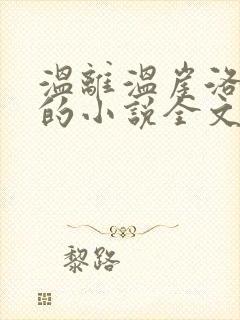 温離温崖洛
的小說全文
黎路